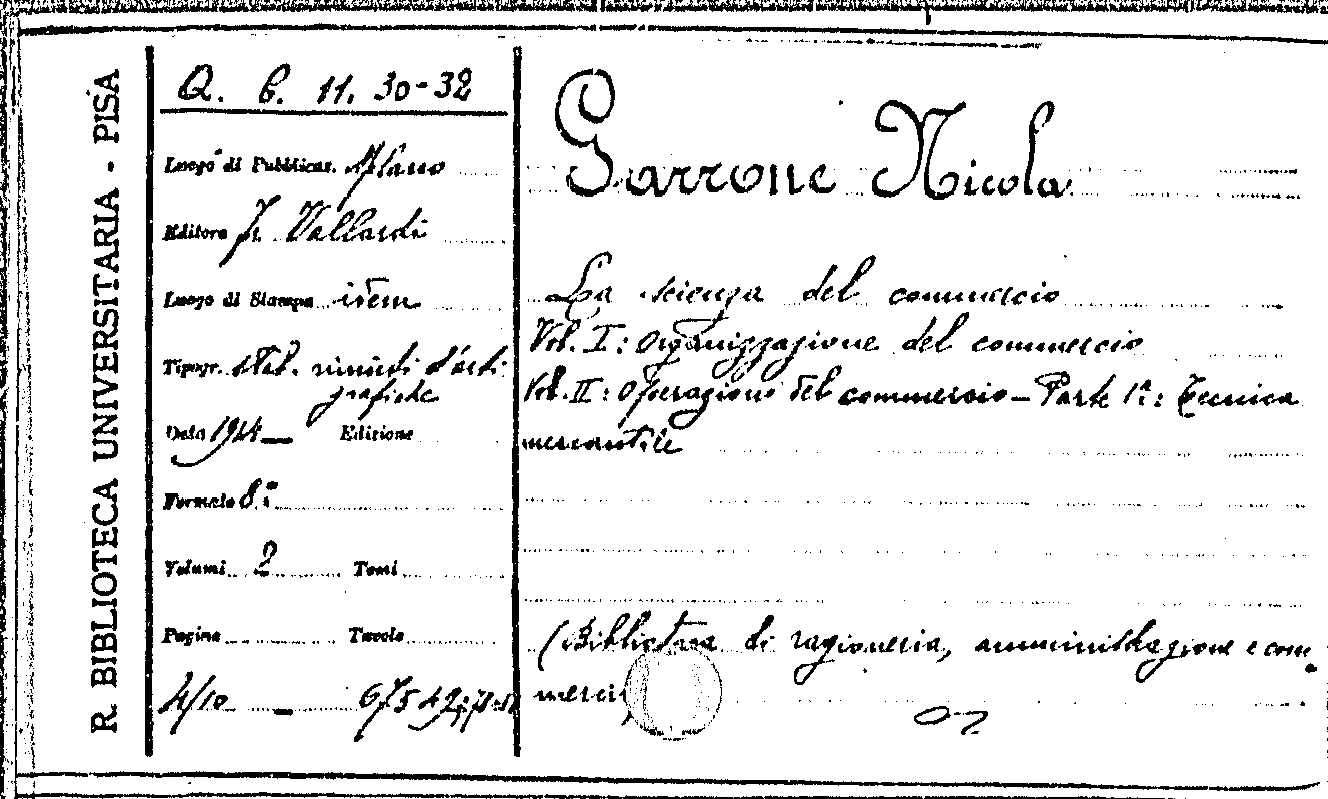 R. BIBLIOTECA UNIVERSITARIA - PISA
Q. b. 11. 30-32
Luogo di Pubblicaz. Milano
Editore Fr. Vallardi
Luogo di Stampa idem
Tipogr. Stab. riuniti d'arti
grafiche
Data Edizione
Formato 8.°
Volumi 2 Tomi
Pagine Tavole
4/10 -
Garrone Nicola
La scienza del commercio
Vol. I: Organizzazione del commercio
Vol. II: Operazioni del commercio - Parte 1ª: Tecnica
mercantile
(Biblioteca di ragioneria, amministrazione e com
merci